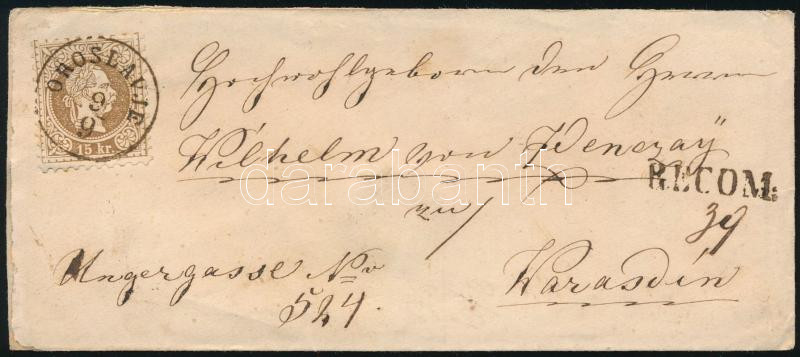 OROSLAVJE
9
9
15 kr.
Hochwohlgeboren den Herrn
Wilhelm von
RECOM:
39
zu
Warasdin
Ungergasse No
524
darabanth